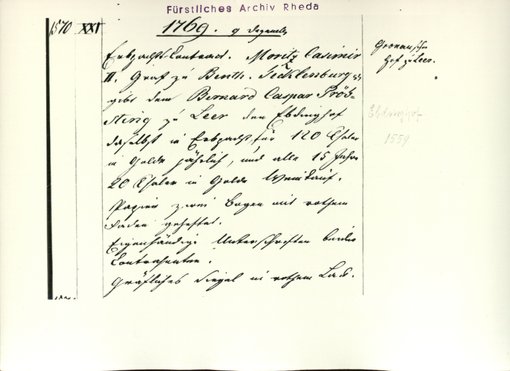 Fürstliches Archiv Rheda
1570 XXI 1769. 9 Dezember
Erbpacht-Contract. Moritz Casimir
II. Graf zu Benth. Tecklenburg
gibt dem Bernard Caspar
zu Leer den Ebdinghof
daselbst in Erbpacht für 120 Thaler
in Golde jährlich, und alle 15 Jahre
20 Thaler in Golde Weinkauf.
Papier zwei Bogen mit rothem
Faden geheftet.
Eigenhändige Unterschriften beider
Contrahenten.
Gräfliches Siegel in rothem Lack.
Hof zu Leer.
1559